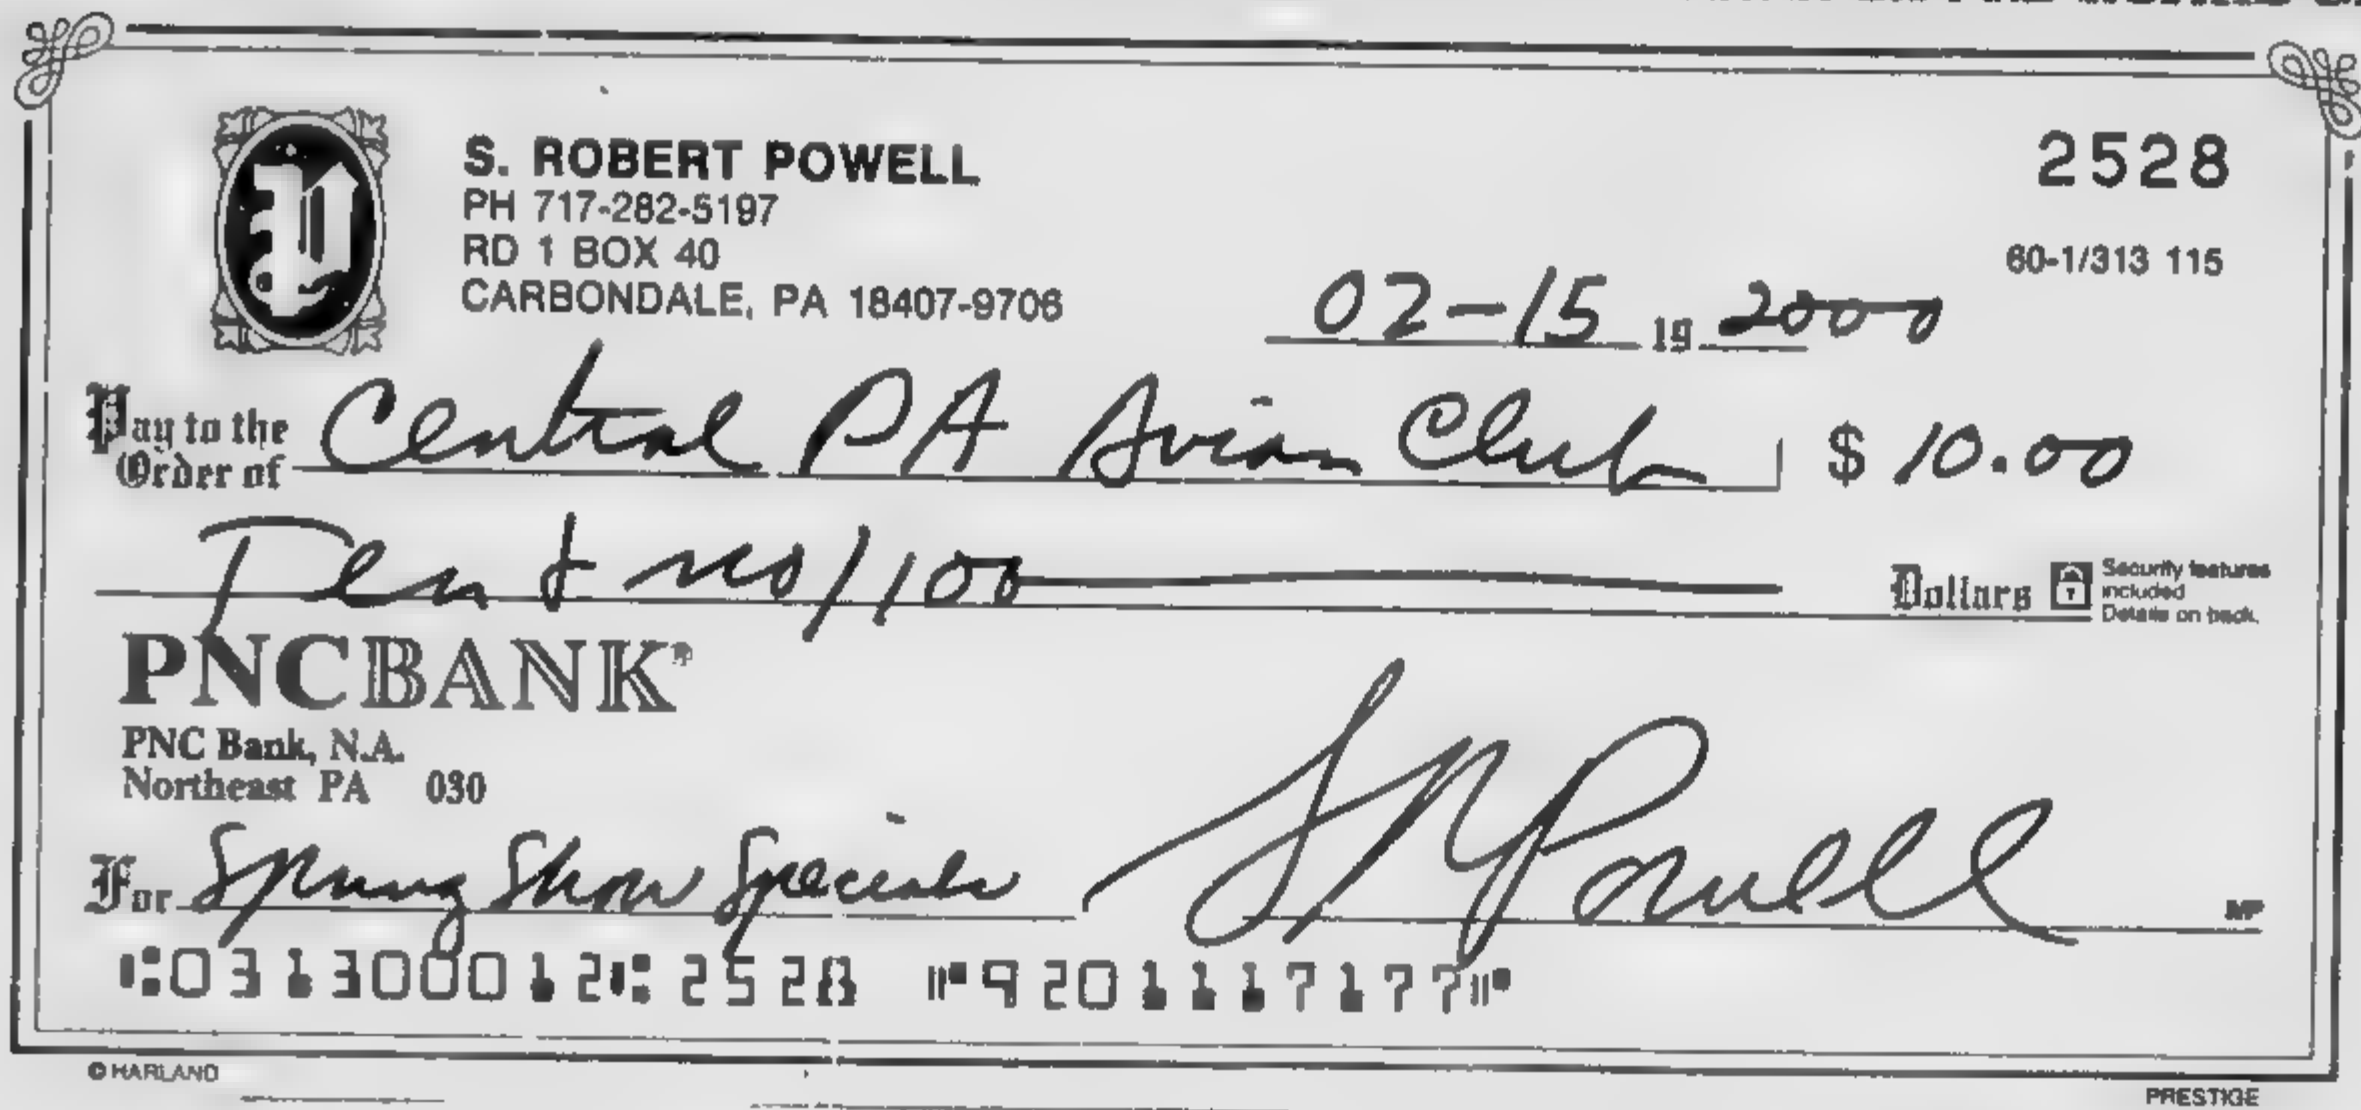 S. ROBERT POWELL
PH 717-282-5197
RD 1 BOX 40
CARBONDALE, PA 18407-9706
2528
60-1/313 115
02-15 19 2000
Pay to the Order of Central PA Avian Club $ 10.00
Ten & no/100 Dollars
Security features
included
Details on back.
PNCBANK
PNC Bank, N.A.
Northeast PA 030
For Spring Show Specials S R Powell MP
⑆031300012⑆2528 ⑈9201117177⑈
© HARLAND
PRESTIGE